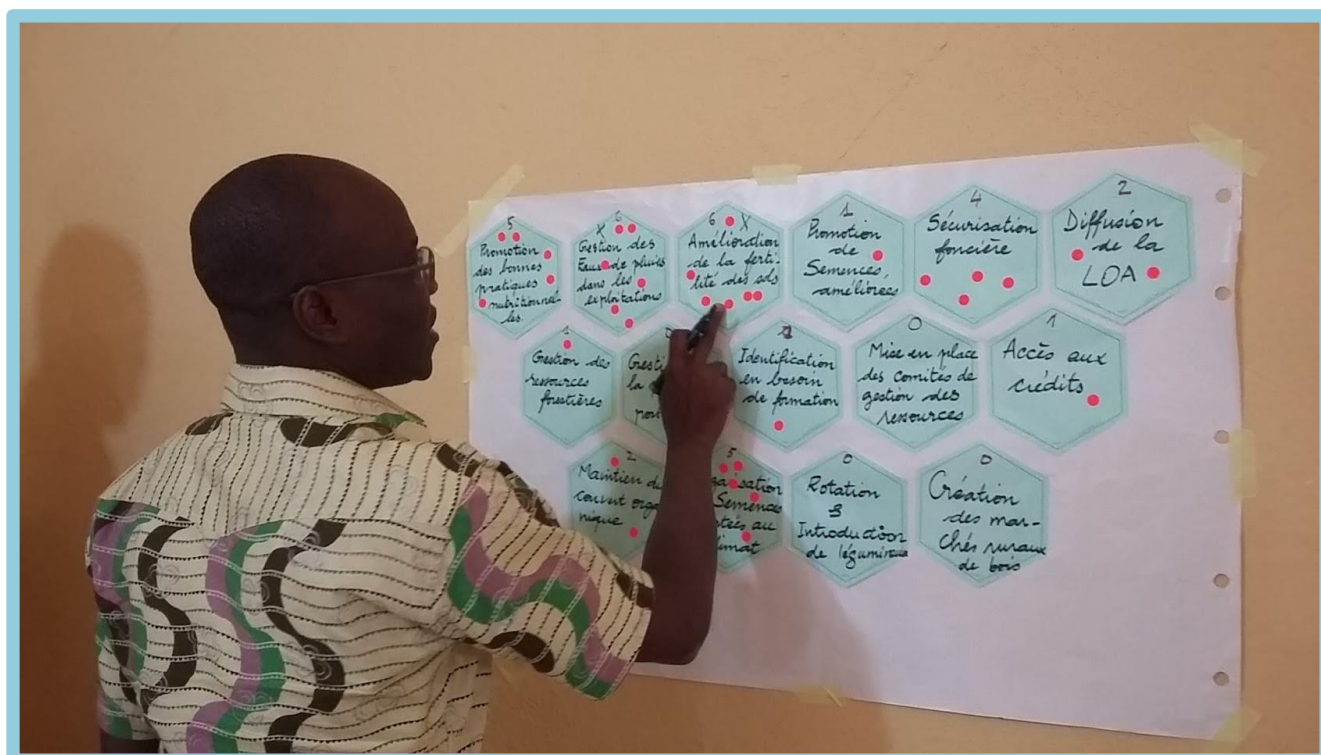 5
Promotion
des bonnes
pratiques
nutritionnel-
les
6
X
Gestion des
Eaux de pluies
dans les
exploitations
6 X
Amélioration
de la ferti-
lité des sols
1
Promotion
de
Semences
améliorées
4
Sécurisation
foncière
2
Diffusion
de la
LOA
1
Gestion des
ressources
forestières
Gesti
la
1
Identification
en besoin
de formation
0
Mise en place
des comités de
gestion des
ressources
1
Accès aux
crédits
2
Maintien du
couvert orga
nique
5
isation
Semences
tées au
imat
0
Rotation
&
Introduction
de légumineuse
0
Création
des mar-
chés ruraux
de bois